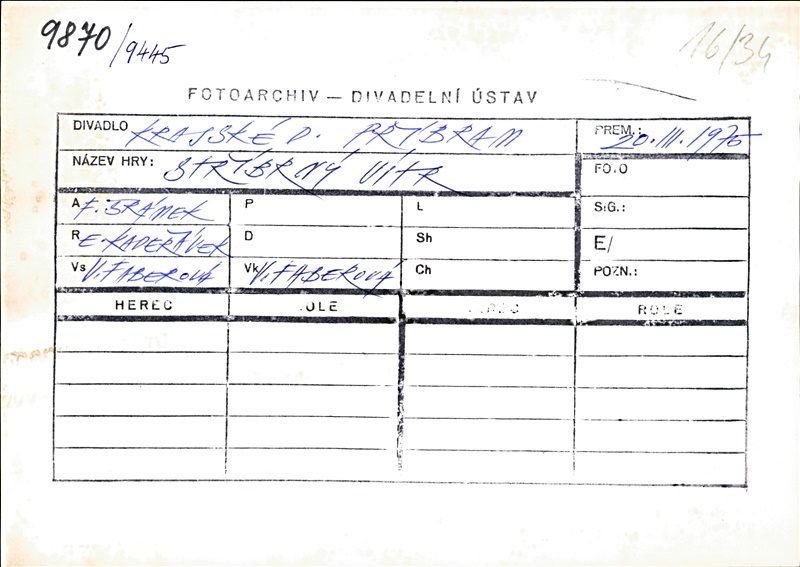 9870/9445
16/34
FOTOARCHIV — DIVADELNÍ ÚSTAV
DIVADLO KRAJSKÉ D. PŘÍBRAM
PREM.: 20.III.1975
NÁZEV HRY: STŘÍBRNÝ VÍTR
FOTO
A F. ŠRÁMEK P L
S:G.:
R E. KADEŘÁVEK D Sh
E/
Vs V. FABEROVÁ Vk V. FABEROVÁ Ch
POZN.:
HEREC ROLE HEREC ROLE